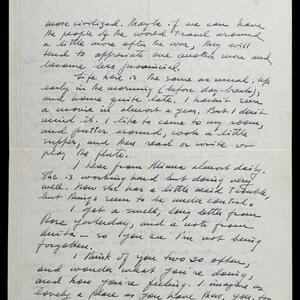 more civilized. Maybe if we can have
the people of the world travel around
a little more after the war, they will
tend to appreciate one another more and
become less provincial.
Life here is the same as usual. Up
early in the morning (before day-break)
and home quite late. I haven't seen
a movie in almost a year. But I don't
mind it. I like to come to my room,
and putter around, cook a little
supper, and then read or write or
play the flute.
I hear from almost daily.
She is working hard but doing very
well. Now she has a little maid trouble,
but things seem to be under control.
Got a swell, long letter from
Rose yesterday, and a note from
Anita – so you see I'm not being
forgotten.
I think of you two so often,
and wonder what you're doing,
and how you're feeling. I imagine
lovely a place as you have there, you, too,